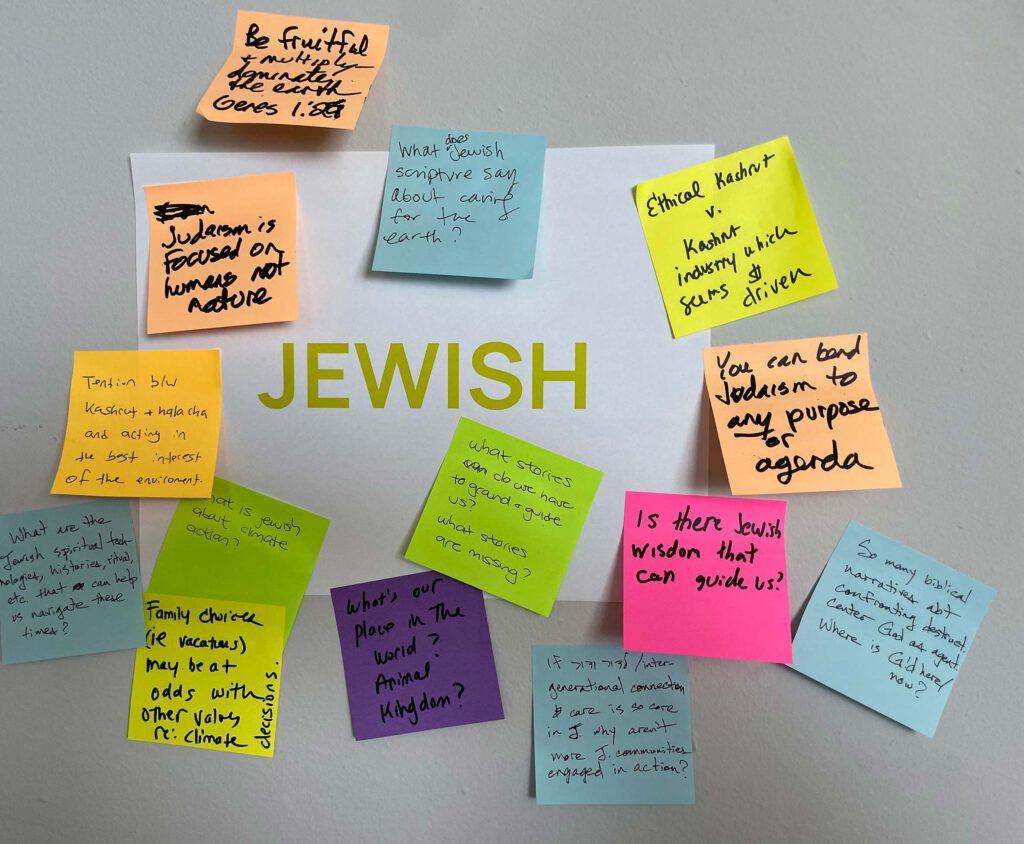 Be fruitful
+ multiply
dominate
the earth
Genes 1:
What does Jewish
scripture say
about caring
for the
earth?
Ethical Kashrut
v.
Kashrut
industry which
seems $
driven
Judaism is
focused on
humans not
nature
JEWISH
You can bend
Judaism to
any purpose
or
agenda
Tention b/w
Kashrut + halacha
and acting in
the best interest
of the enviroment.
what stories
do we have
to ground + guide
us?
what stories
are missing?
what is jewish
about climate
action?
What are the
Jewish spiritual tech-
nologies, histories, ritual,
etc. that can help
us navigate these
times?
Is there Jewish
wisdom that
can guide us?
So many biblical
narratives abt
confronting destruct.
center God as agent.
Where is G'd here/
now?
Family choices
(ie vacations)
may be at
odds with
other values
re: climate
decisions.
What's our
place in The
World?
Animal
Kingdom?
If לדור ודור/inter-
generational connection
& care is so core
in J why aren't
more J. communities
engaged in action?